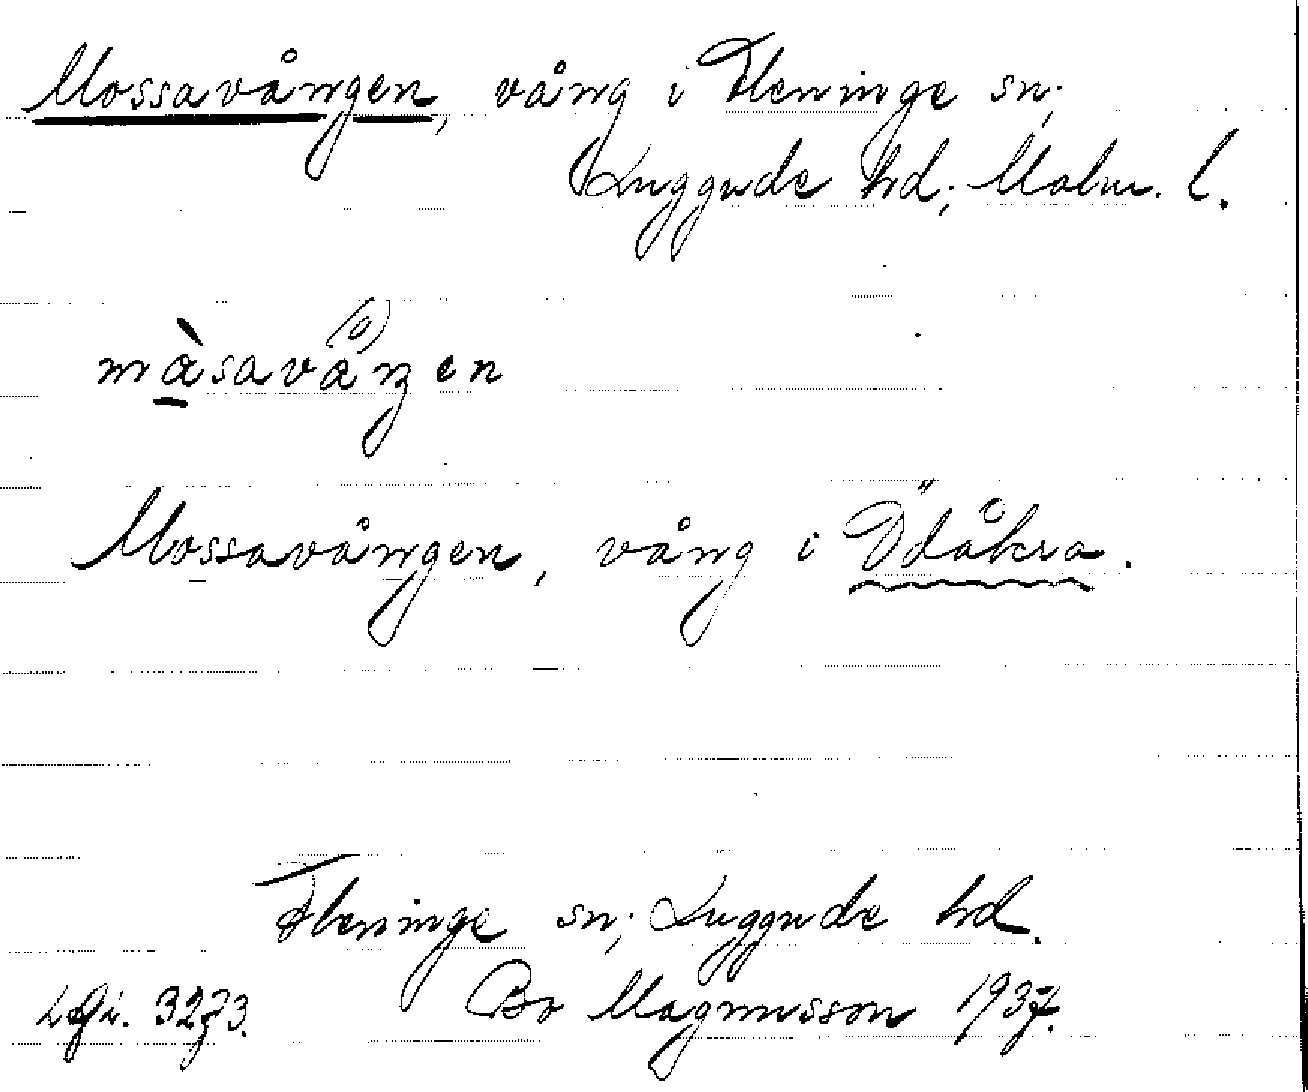 Mossavången, vång i Fleninge sn;
Luggude hd; Malm. l.
màsavå(o)ŋen
Mossavången, vång i Ödåkra.
Fleninge sn; Luggude hd.
Bo Magnusson 1937.